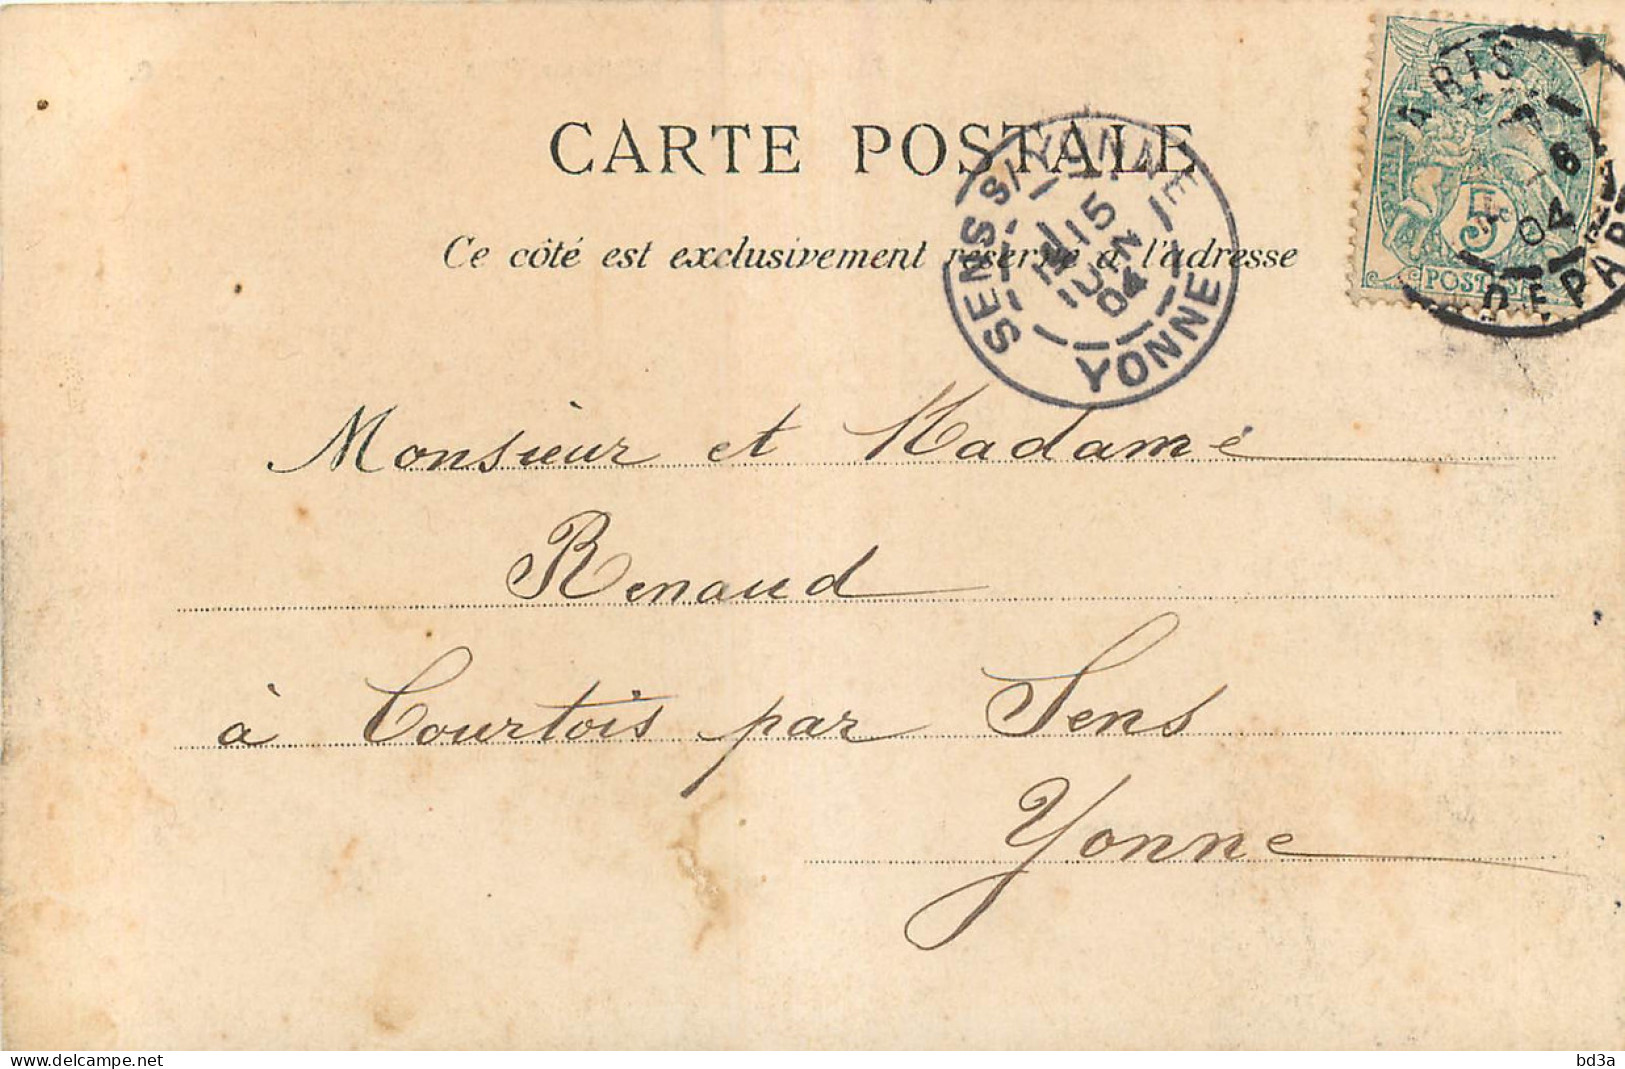 CARTE POSTALE
Ce côté est exclusivement réservé à l'adresse
SENS S/YONNE
15
JUIN
04
YONNE
PARIS
8
04
DEPART
5c
POSTES
Monsieur et Madame
Renaud
à Courtois par Sens
Yonne
www.delcampe.net
bd3a